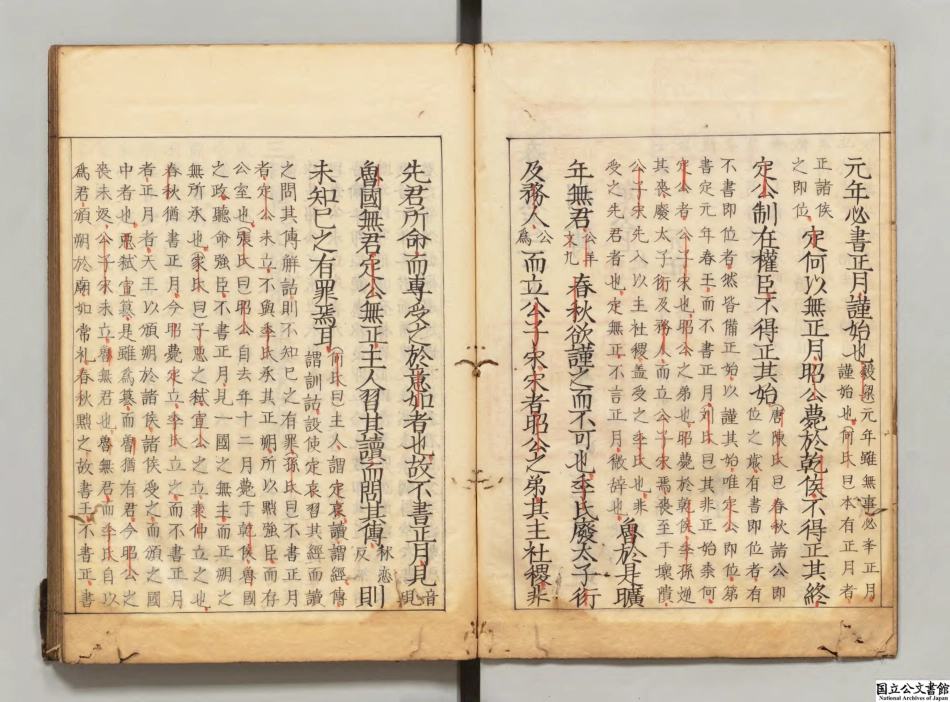 元年必書正月謹始也
穀梁元年雖無事必挙正月
謹始也何氏曰本有正月者
正諸侯
之即位
定何以無正月昭公薨於乾侯不得正其終
定公制在權臣不得正其始
唐陳氏曰春秋諸公即
位之歳有書即位者有
不書即位者然皆備正始以謹其始唯定公即位第
書定元年春王而不書正月刘氏曰其非正始柰何
定公者公子宋也昭公之弟也昭薨於乾侯季孫逆
其喪廢太子衍及務人而立公子宋焉喪至于壞隤
公子宋先入以主社稷盖受之季氏也非
受之先君者也定無正不言正月微辞也
魯於是曠
年無君
公羊
文九
春秋欲謹之而不可也季氏廢太子衍
及務人
公
為
而立公子宋宋者昭公之弟其主社稷非
先君所命而専受之於意如者也故不書正月見
音
現
魯國無君定公無正主人習其讀而問其傳
秋恋
反
則
未知已之有罪焉耳
何氏曰主人謂定哀讀謂經傳
謂訓詁設使定哀習其經而讀
之問其傳解詁則不知已之有罪孫氏曰不書正月
者定公未立不與季氏承其正朔所以黜強臣而存
公室也張氏曰昭公自去年十二月薨于乾侯魯國
之政聽命強臣不書正月見一國之無主而正朔之
無所承也家氏曰子惡之弑宣公之立襄仲立之也
春秋猶書正月今昭薨定立季氏立之而不書正月
者正月者天王以頒朔於諸侯諸侯受之而頒之國
中者也惡弑宣簒是雖為簒而魯猶有君今昭公之
喪未返公子宋未立魯無君也魯無君而季氏自以
為君頒朔於廟如常礼春秋黜之故書王不書正書
国立公文書館
National Archives of Japan